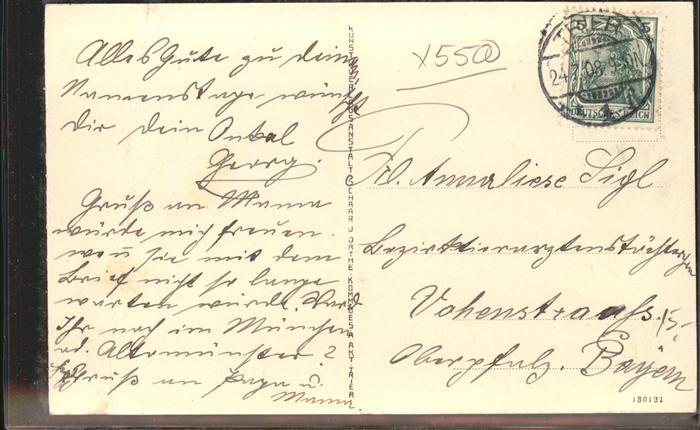 Alles Gute zu dein
Namenstage wünscht
Dir dein Onkel
Georg.
Gruß an Mama
würde mich freuen.
wen̄ sie mit dem
Brief nicht so lange
warten würde. Ward
Ihr noch im München
od. Altomünster?
Gruß an Papa u.
Mama.
KUNSTVERLAGSANSTALT SCHAAR U. DATHE KOMM. GES. A. AKT. TRIER
X550
TRIER
24.7.08
DEUTSCHES REICH
5
Frl. Annaliese Sigl
Bezirkstierarztenstöchterchen
Vohenstraufs.
15.-
Oberpfalz. Bayern
130121